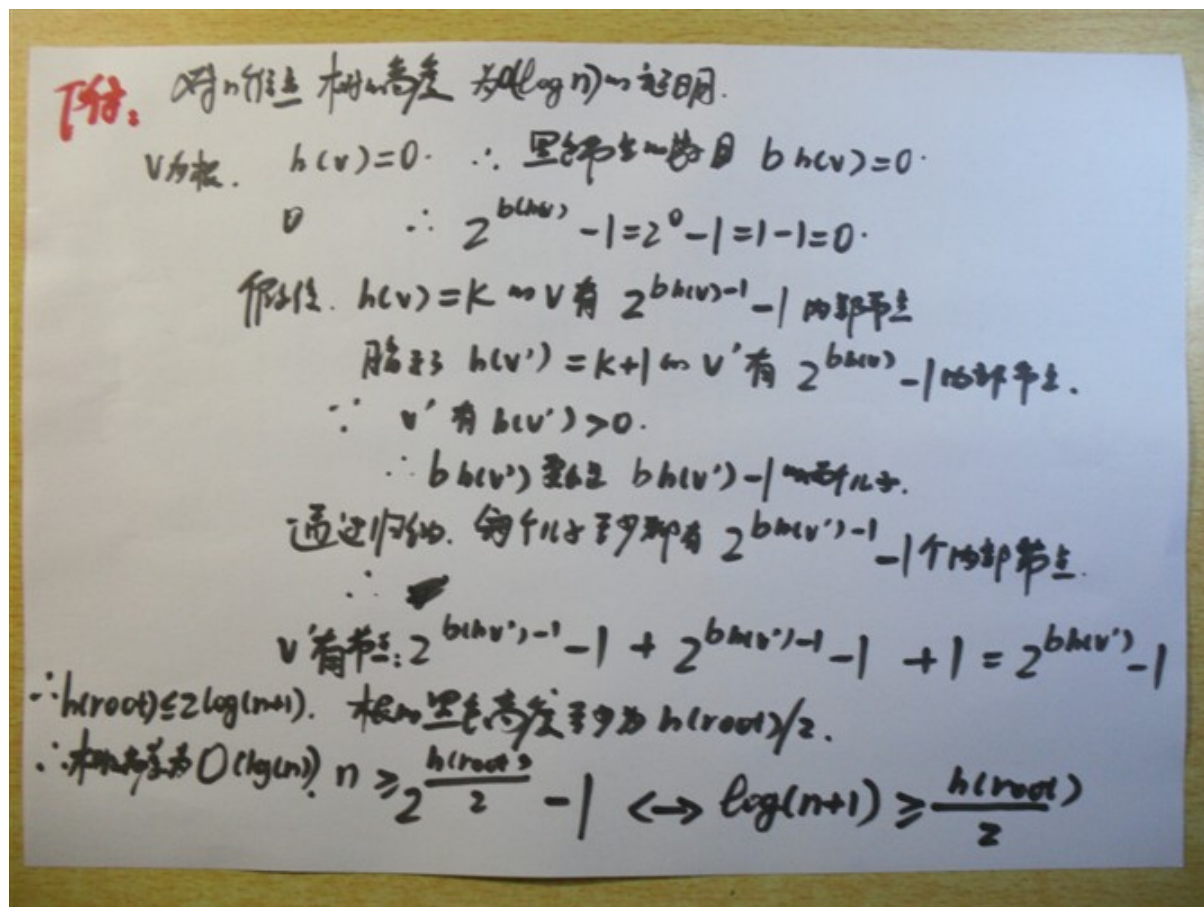 下附: 对n个信点 树的高度 为O(log n)的证明.
V为根. h(v)=0. ∴ 黑色节点的数目 bh(v)=0.
0 ∴ 2^bh(v) -1=2^0-1=1-1=0.
假设. h(v)=K的V有 2^bh(v)-1 -1 内部节点
h(v')=K+1的V'有 2^bh(v) -1内部节点.
∵ v'有h(v')>0.
∴ bh(v') bh(v')-1 的两个儿子.
通过归纳. 每个儿子至少都有 2^bh(v')-1 -1个内部节点.
∴
V'有节点: 2^bh(v')-1 -1 + 2^bh(v')-1 -1 +1 = 2^bh(v') -1
∴h(root)≤2log(n+1). 根的黑色高度至少为h(root)/2.
∴树的高度为O(lg(n)). n ≥ 2^h(root)/2 -1 <-> log(n+1) ≥ h(root)/2